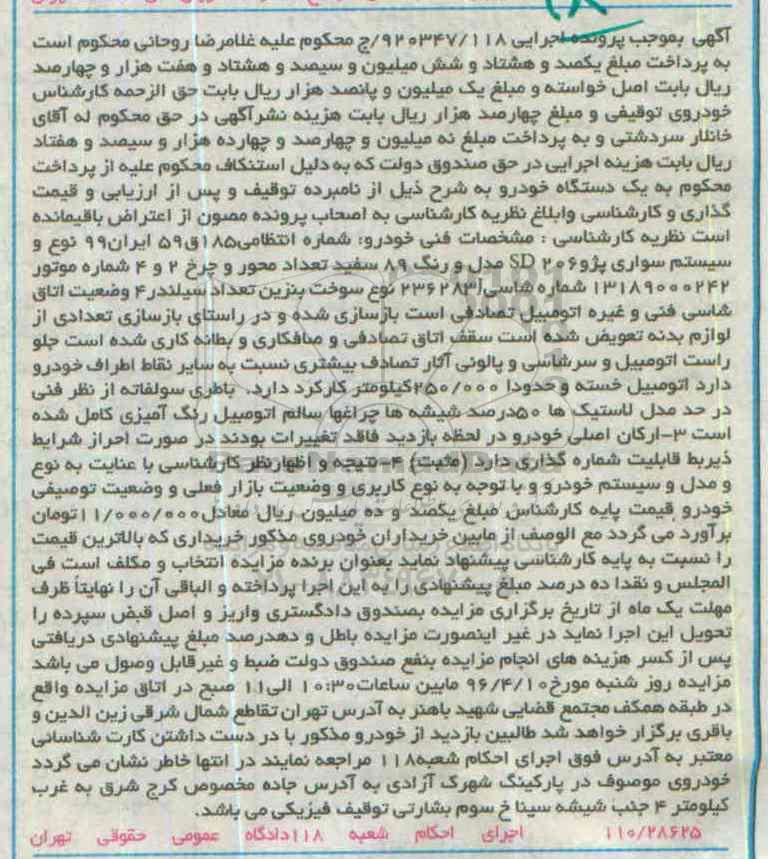 آگهی بموجب پرونده اجرایی ۹۲۰۳۴۷/۱۱۸/ج محکوم علیه غلامرضا روحانی محکوم است
به پرداخت مبلغ یکصد و هشتاد و شش میلیون و سیصد و هشتاد و هفت هزار و چهارصد
ریال بابت اصل خواسته و مبلغ یک میلیون و پانصد هزار ریال بابت حق الزحمه کارشناس
خودروی توقیفی و مبلغ چهارصد هزار ریال بابت هزینه نشرآگهی در حق محکوم له آقای
خانلار سردشتی و به پرداخت مبلغ نه میلیون و چهارصد و چهارده هزار و سیصد و هفتاد
ریال بابت هزینه اجرایی در حق صندوق دولت که به دلیل استنکاف محکوم علیه از پرداخت
محکوم به یک دستگاه خودرو به شرح ذیل از نامبرده توقیف و پس از ارزیابی و قیمت
گذاری و کارشناسی وابلاغ نظریه کارشناسی به اصحاب پرونده مصون از اعتراض باقیمانده
است نظریه کارشناسی : مشخصات فنی خودرو: شماره انتظامی۱۸۵ق۵۹ ایران۹۹ نوع و
سیستم سواری پژو۲۰۶ SD مدل و رنگ ۸۹ سفید تعداد محور و چرخ ۲ و ۴ شماره موتور
۱۳۱۸۹۰۰۰۲۴۲ شماره شاسیJ۲۳۶۲۸۳ نوع سوخت بنزین تعداد سیلندر۴ وضعیت اتاق
شاسی فنی و غیره اتومبیل تصادفی است بازسازی شده و در راستای بازسازی تعدادی از
لوازم بدنه تعویض شده است سقف اتاق تصادفی و صافکاری و بطانه کاری شده است جلو
راست اتومبیل و سرشاسی و پالونی آثار تصادف بیشتری نسبت به سایر نقاط اطراف خودرو
دارد اتومبیل خسته و حدودا ۲۵۰/۰۰۰کیلومتر کارکرد دارد. باطری سولفاته از نظر فنی
در حد مدل لاستیک ها ۵۰درصد شیشه ها چراغها سالم اتومبیل رنگ آمیزی کامل شده
است ۳-ارکان اصلی خودرو در لحظه بازدید فاقد تغییرات بودند در صورت احراز شرایط
ذیربط قابلیت شماره گذاری دارد (مثبت) ۴-نتیجه و اظهارنظر کارشناسی با عنایت به نوع
و مدل و سیستم خودرو و با توجه به نوع کاربری و وضعیت بازار فعلی و وضعیت توصیفی
خودرو قیمت پایه کارشناس مبلغ یکصد و ده میلیون ریال معادل۱۱/۰۰۰/۰۰۰تومان
برآورد می گردد مع الوصف از مابین خریداران خودروی مذکور خریداری که بالاترین قیمت
را نسبت به پایه کارشناسی پیشنهاد نماید بعنوان برنده مزایده انتخاب و مکلف است فی
المجلس و نقدا ده درصد مبلغ پیشنهادی را به این اجرا پرداخته و الباقی آن را نهایتاً ظرف
مهلت یک ماه از تاریخ برگزاری مزایده بصندوق دادگستری واریز و اصل قبض سپرده را
تحویل این اجرا نماید در غیر اینصورت مزایده باطل و دهدرصد مبلغ پیشنهادی دریافتی
پس از کسر هزینه های انجام مزایده بنفع صندوق دولت ضبط و غیرقابل وصول می باشد
مزایده روز شنبه مورخ۹۶/۴/۱۰ مابین ساعات۱۰:۳۰ الی۱۱ صبح در اتاق مزایده واقع
در طبقه همکف مجتمع قضایی شهید باهنر به آدرس تهران تقاطع شمال شرقی زین الدین و
باقری برگزار خواهد شد طالبین بازدید از خودرو مذکور با در دست داشتن کارت شناسائی
معتبر به آدرس فوق اجرای احکام شعبه۱۱۸ مراجعه نمایند در انتها خاطر نشان می گردد
خودروی موصوف در پارکینگ شهرک آزادی به آدرس جاده مخصوص کرج شرق به غرب
کیلومتر ۴ جنب شیشه سینا خ سوم بشارتی توقیف فیزیکی می باشد.
۱۱۰/۲۸۶۲۵ اجرای احکام شعبه ۱۱۸دادگاه عمومی حقوقی تهران